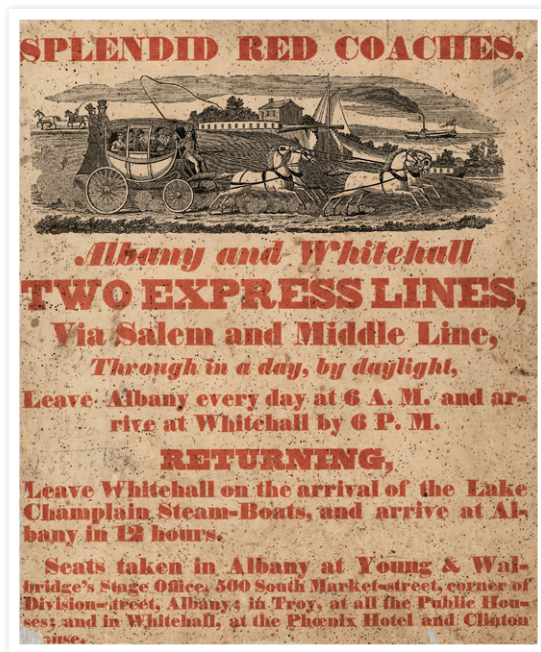 SPLENDID RED COACHES.
Albany and Whitehall
TWO EXPRESS LINES,
Via Salem and Middle Line,
Through in a day, by daylight,
Leave Albany every day at 6 A. M. and ar-
rive at Whitehall by 6 P. M.
RETURNING,
Leave Whitehall on the arrival of the Lake
Champlain Steam-Boats, and arrive at Al-
bany in 12 hours.
Seats taken in Albany at Young & Wal-
bridge's Stage Office, 500 South Market-street, corner of
Division-street, Albany; in Troy, at all the Public Hou-
ses; and in Whitehall, at the Phœnix Hotel and Clinton